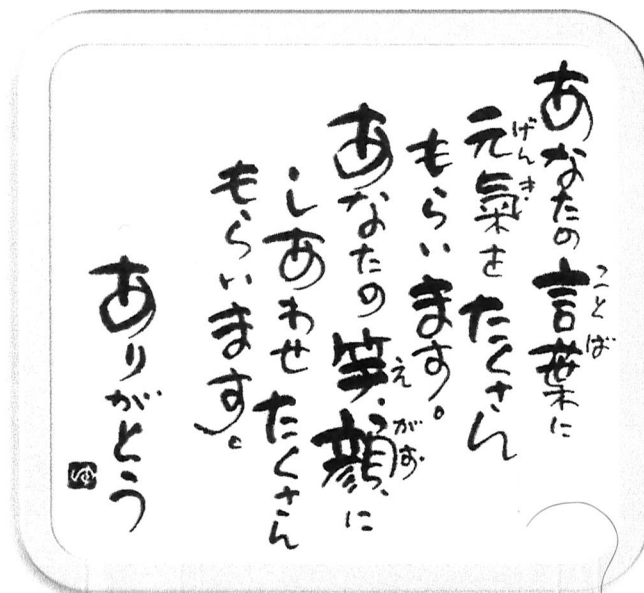 あなたの言葉に
元氣をたくさん
もらいます。
あなたの笑顔に
しあわせたくさん
もらいます。
ありがとう